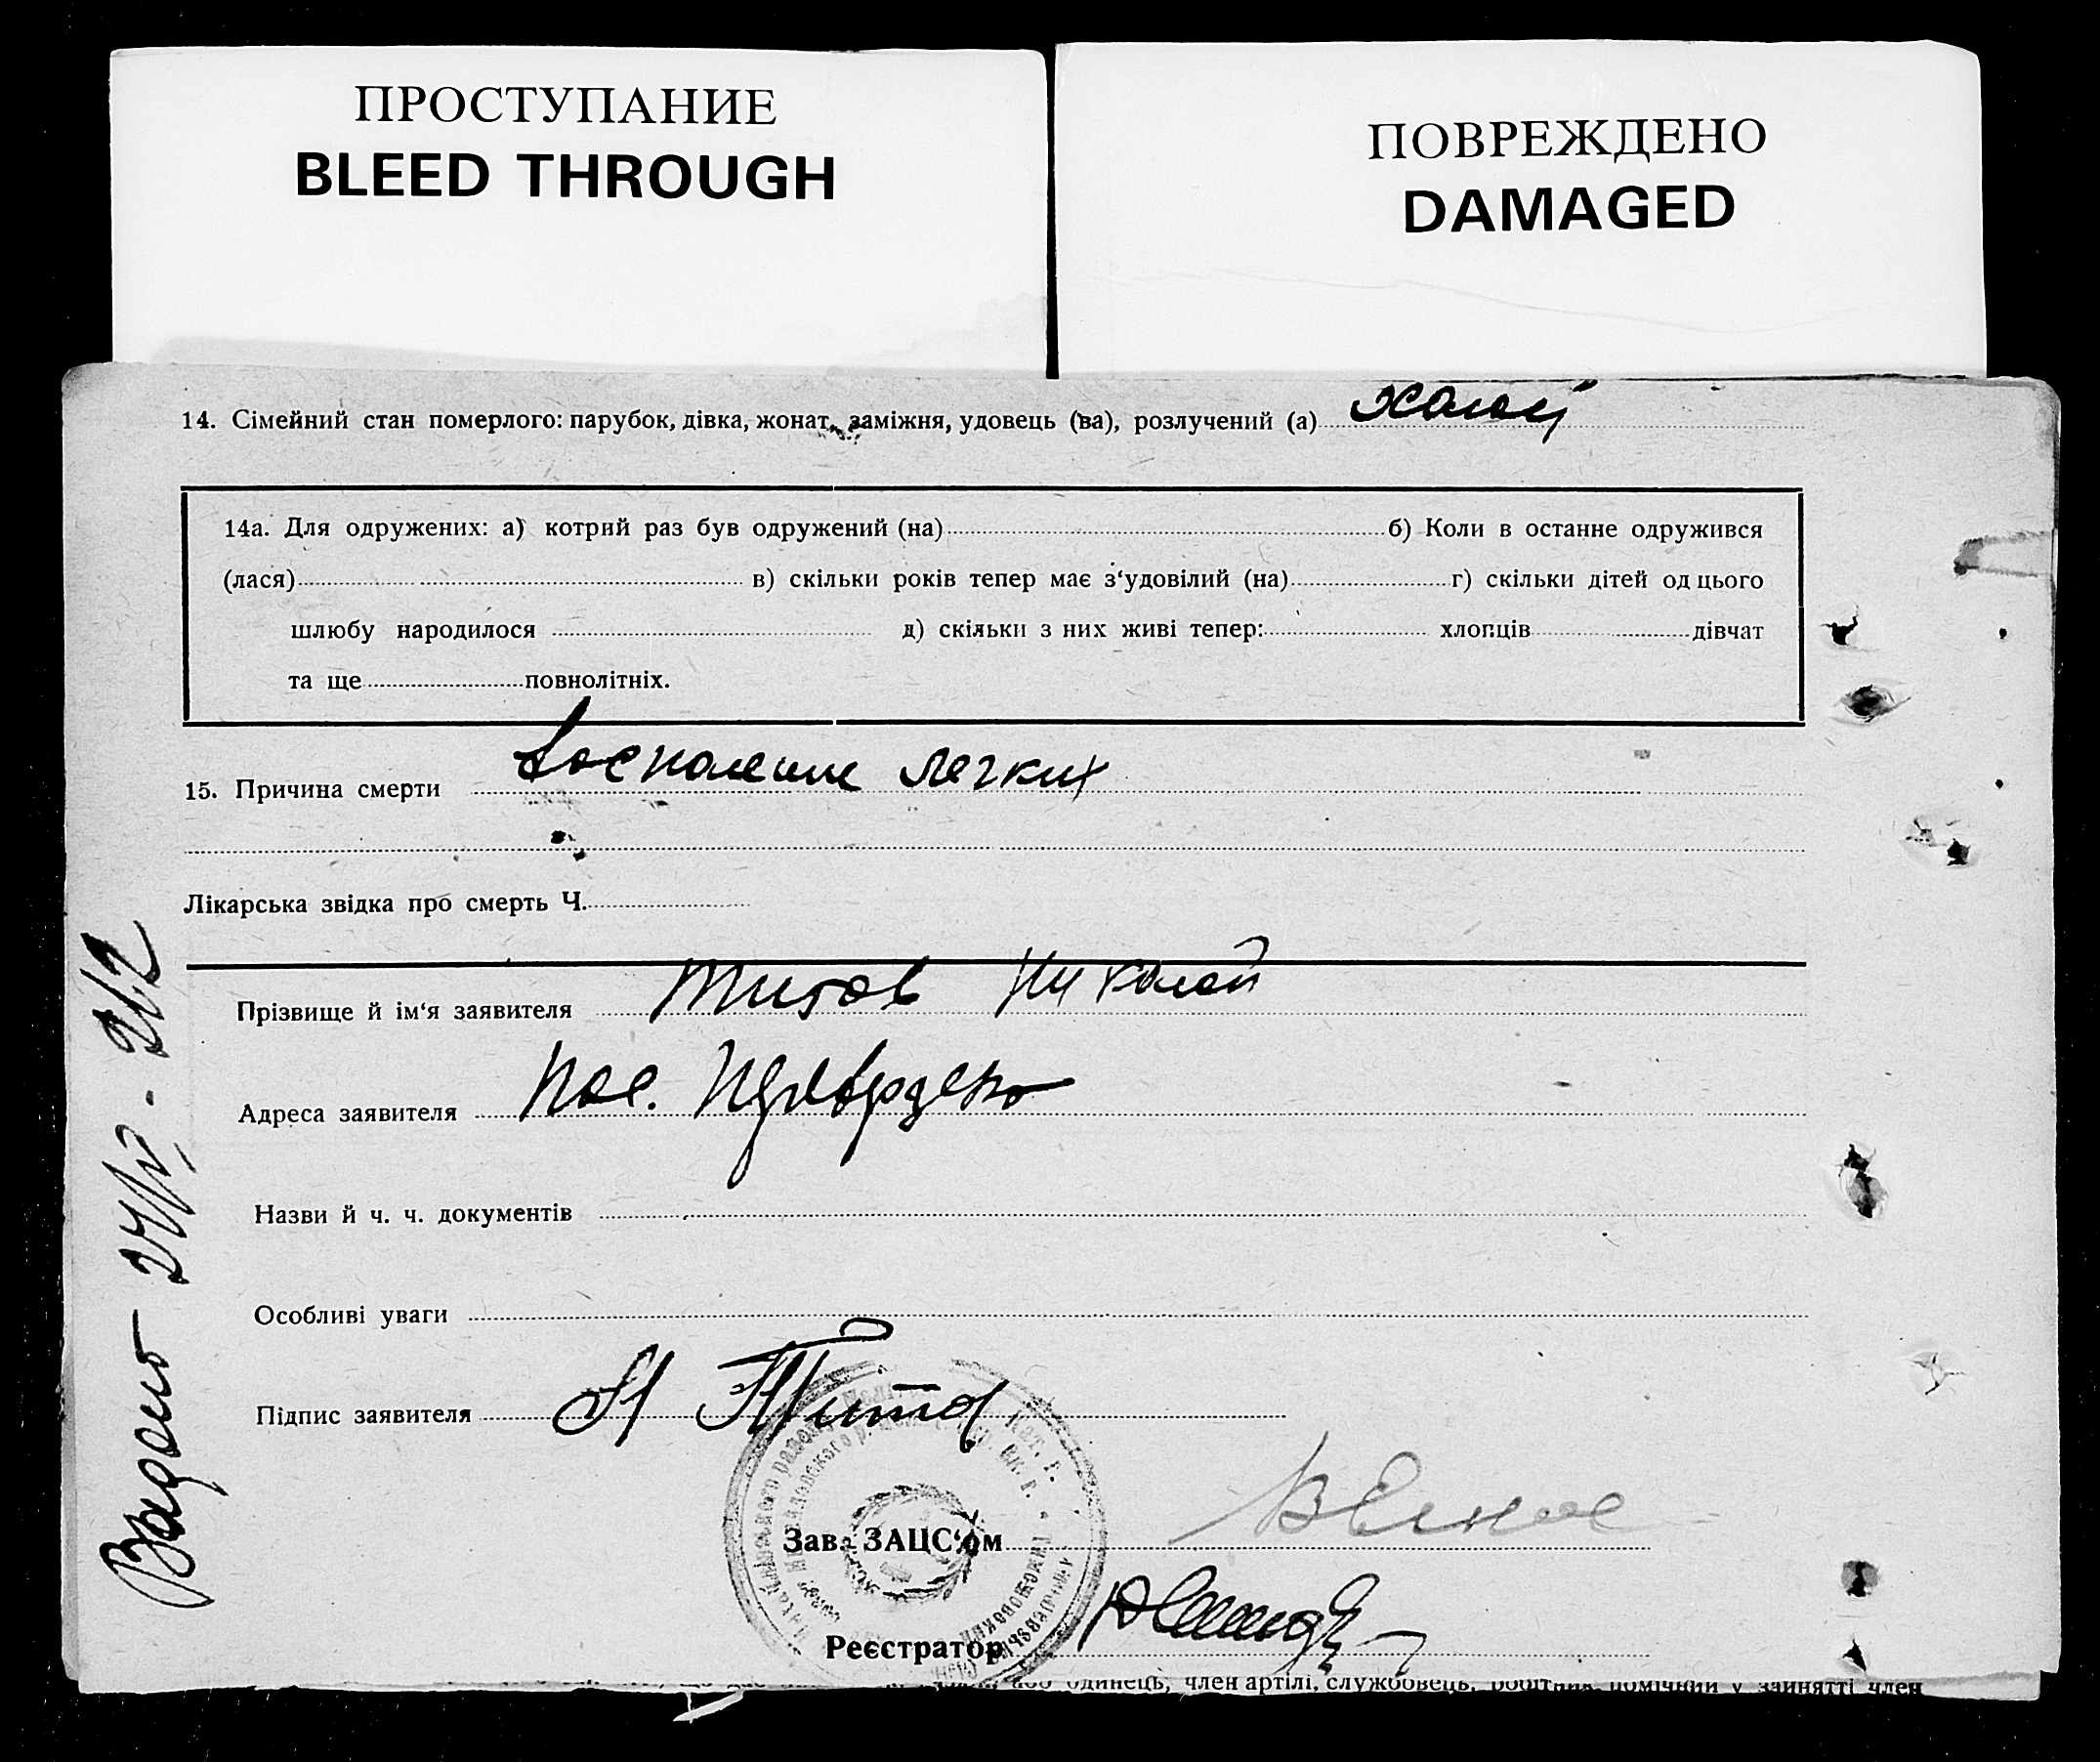 ПРОСТУПАНИЕ
BLEED THROUGH
ПОВРЕЖДЕНО
DAMAGED
14. Сімейний стан померлого: парубок, дівка, жонат, заміжня, удовець (ва), розлучений (а) холост
14а. Для одружених: а) котрий раз був одружений (на) б) Коли в останне одружився
(лася) в) скільки років тепер має з‘удовілий (на) г) скільки дітей од цього
шлюбу народилося д) скільки з них живі тепер: хлопців дівчат
та ще повнолітніх.
15. Причина смерти Воспаление легких
Лікарська звідка про смерть Ч.
Прізвище й ім‘я заявителя Титов Николай
Адреса заявителя пос.
Назви й ч. ч. документів
Особливі уваги
Підпис заявителя Н Титов
Зав. ЗАЦС‘ом
Реєстратор
або одинець, член артілі, службовець, робітник, помічний у занятті член